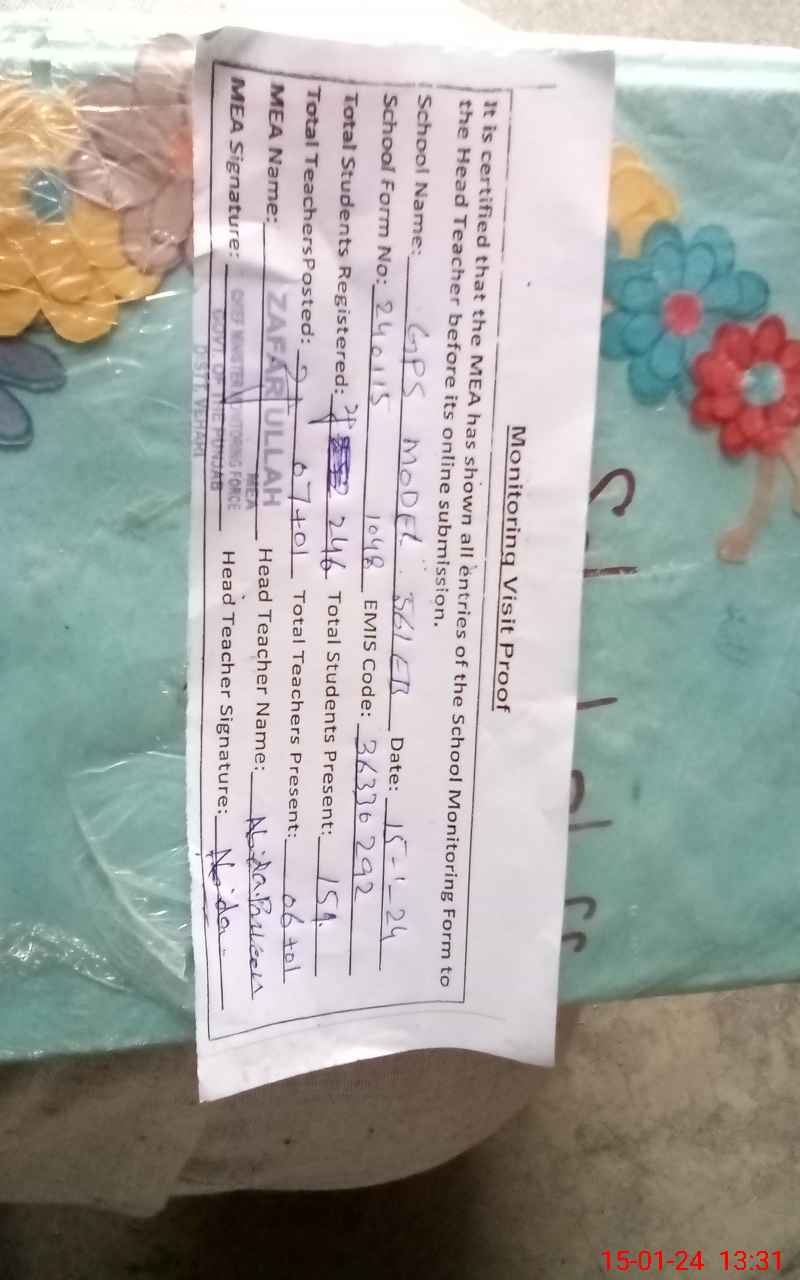 Monitoring Visit Proof
It is certified that the MEA has shown all entries of the School Monitoring Form to
the Head Teacher before its online submission.
School Name: GPS MODEL 561 EB Date: 15-1-24
School Form No: 240115 1048 EMIS Code: 36330292
Total Students Registered: 246 Total Students Present: 159
Total TeachersPosted: 07+01 Total Teachers Present: 06+01
MEA Name: ZAFAR ULLAH Head Teacher Name: Abida Parveen
MEA
MEA Signature: Head Teacher Signature: Abida
CHIEF MINISTER MONITORING FORCE
GOVT. OF THE PUNJAB
DISTT VEHARI
15-01-24 13:31